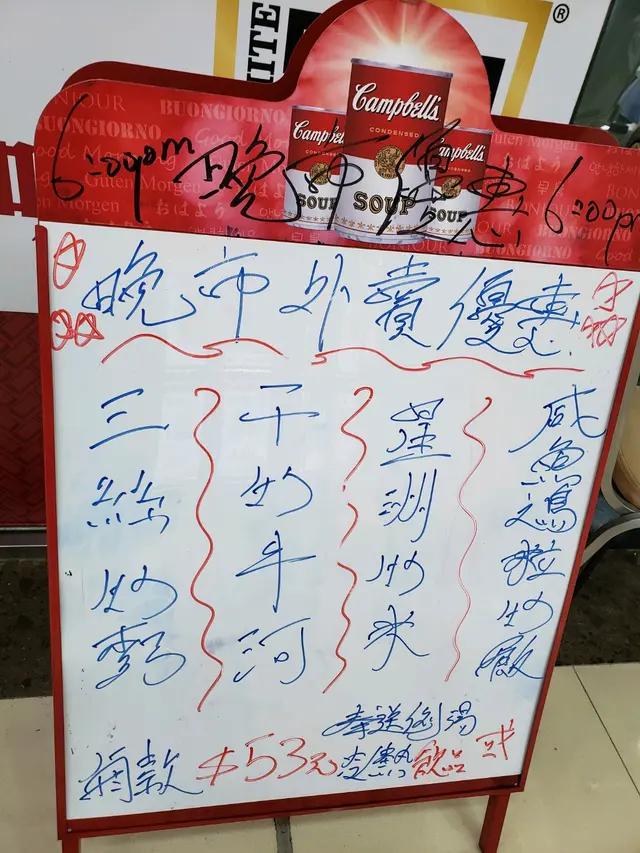 ITE
®
BONJOUR
BUONGIORNO
Good Morning
Guten Morgen
おはよう
Campbell's
CONDENSED
SOUP
6:00pm 晚市優惠 6:00pm
晚市外賣優惠
咸魚鸡粒炒飯
星洲炒米
干炒牛河
三絲炒麵
奉送例湯 或
兩款 $53元 冷熱飲品